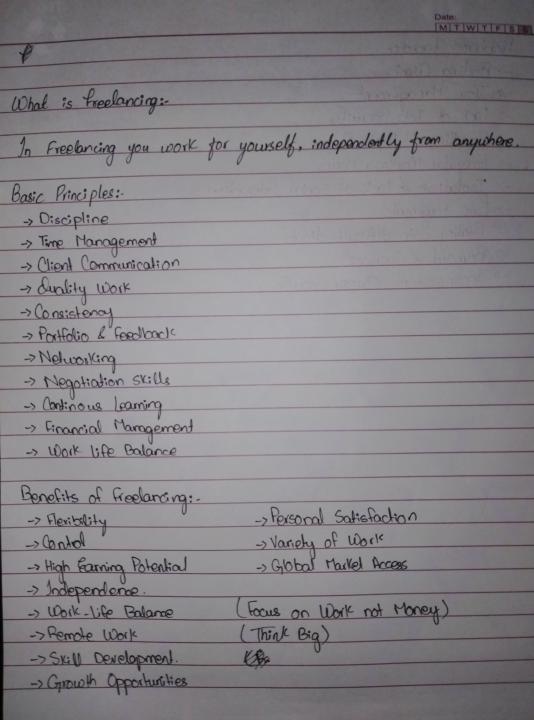 Date:
M T W T F S S
What is freelancing:-
In Freelancing you work for yourself, independently from anywhere.
Basic Principles:-
→ Discipline
→ Time Management
→ Client Communication
→ Quality Work
→ Consistency
→ Portfolio & feedback
→ Networking
→ Negotiation skills
→ Continous Learning
→ Financial Management
→ Work life Balance
Benefits of freelancing:-
→ Flexibility
→ Control
→ High Earning Potential
→ Independence.
→ Work-life Balance
→ Remote Work
→ Skill Development.
→ Growth Opportunities
→ Personal Satisfaction
→ Variety of Work
→ Global Market Access
(Focus on Work not Money)
(Think Big)